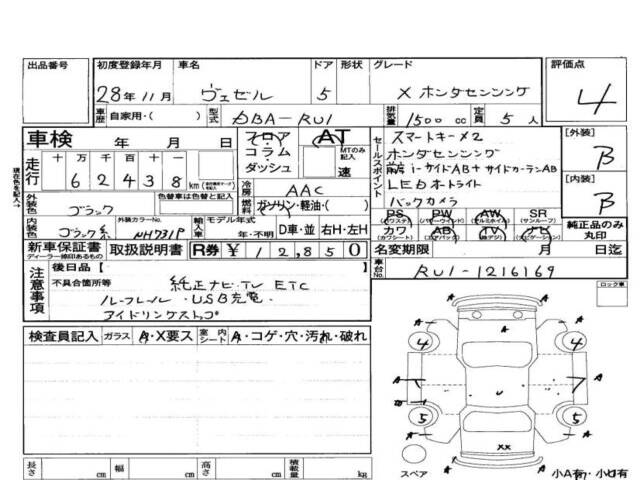 出品番号 初度登録年月 車名 ドア 形状 グレード 評価点
28年11月 ヴェゼル 5 X ホンダセンシング 4
車歴 自家用・( ) 型式 DBA-RU1 排気量 1500 cc 定員 5 人
車検 年 月 日 フロア AT スマートキー×2 [外装]
コラム MTのみ記入 ホンダセンシング B
走行 十 万 千 百 十 ダッシュ 速 セールスポイント 前 i-サイドAB+サイドカーテンAB
6 2 4 3 8 km 冷房 AAC LEDオートライト [内装]
色替車は色替と記入 燃料 ガソリン・軽油・( ) バックカメラ B
外装色 ブラック PS PW AW SR
(パワステ) (パワーウィンド) (アルミホイル) (サンルーフ)
内装色 ブラック系 外装カラーNo. NH731P 輸入車 モデル年式 年・不明 D車・並 右H・左H カワ AB TV ナビ 純正品のみ丸印
(カワシート) (エアバック) (ナビゲーション)
新車保証書 取扱説明書 R券 ¥ 12,850 名変期限 月 日迄
ディーラー捺印あるもの
現在色を記入
注意事項 後日品 [ ] 車台No. RU1-1216169
不具合箇所等 純正ナビ・TV ETC ロック車
ルーフレール・USB充電
アイドリングストップ
検査員記入 ガラス A・X要ス 室内シート A・コゲ・穴・汚れ・破れ
A A A
4 4
A A
5 5
A A
XX
長さ cm 幅 cm 高さ cm 積載量 kg スペア 小A有・小U有